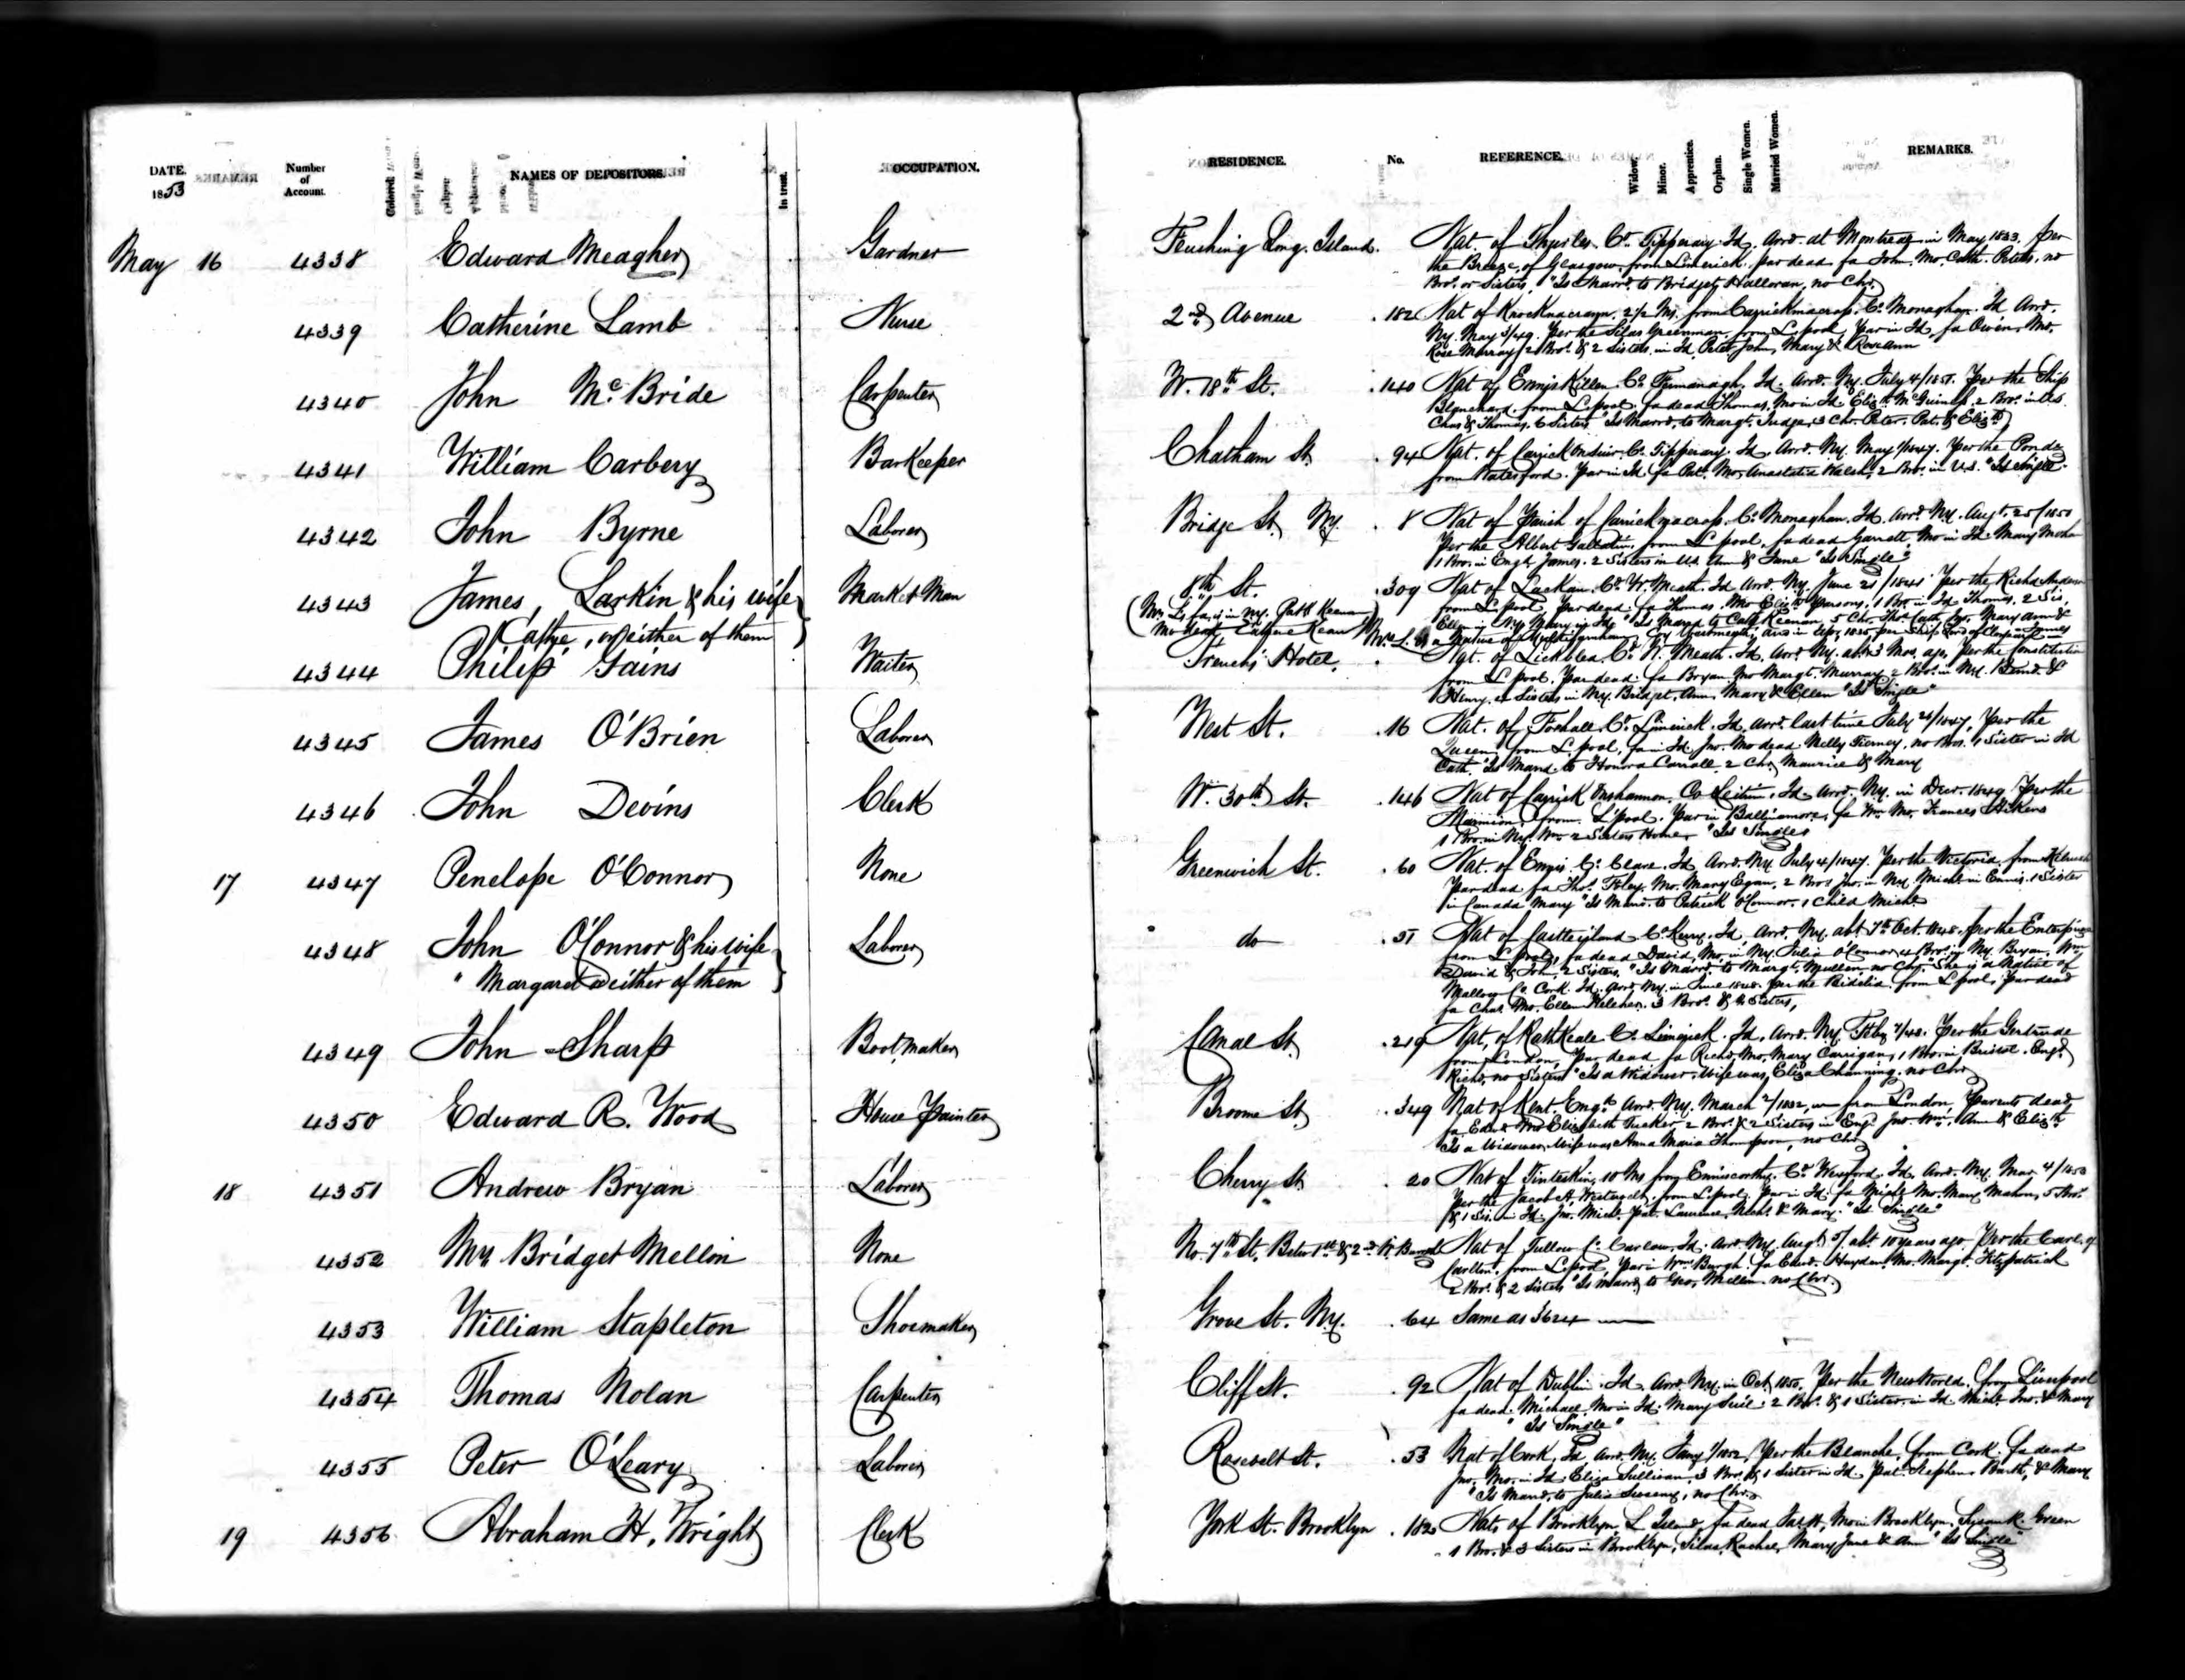 DATE. 1853
Number of Account.
NAMES OF DEPOSITORS.
In trust.
OCCUPATION.
RESIDENCE.
No.
REFERENCE.
Widow.
Minor.
Apprentice.
Orphan.
Single Women.
Married Women.
REMARKS.
May 16 4338 Edward Meagher Gardner Flushing Long Island. Nat. of Thurles Co. Tipperary Id. Arrd. at Montreal in May 1833 per
the Breeze, of Glasgow, from Limerick. par dead fa John. Mo. Cath. Peters, no
Bro. or Sisters. "Is Marrd. to Bridget Halloran, no Chr.
4339 Catherine Lamb Nurse 2nd Avenue 182 Nat of 2½ Ms. from Carrickmacross Co. Monaghan. Id. Arrd.
Ny. May 3/49. Per the Silas Greenman, from L.pool, Par in Id, fa Owen, Mo.
Rose Murray, 2 Bro. & 2 Sisters in Id. Peter John, Mary & Roseann
4340 John McBride Carpenter W. 18th St. 140 Nat of Enniskillen Co. Fermanagh. Id. Arrd. Ny. July 4/1851. Per the Ship
Blanchard from L.pool. fa dead Thomas, Mo in Id. Elizth. McGuiness, 2 Bro. in U.S.
Chas & Thomas, 6 Sisters "Is Marrd. to Margt. Judge, 3 Chr. Peter, Pat. & Elizth.
4341 William Carbery BarKeeper Chatham St. 94 Nat. of Carrick on Suir Co. Tipperary. Id. Arrd. Ny. May 1/1847. Per the
from Waterford. Par in Id. fa Pat. Mo. Anastatia Walsh, 2 Bro. in U.S. "Is Single"
4342 John Byrne Laborer Bridge St. Ny. 8 Nat of Parish of Carrickmacross. Co. Monaghan. Id. Arrd. Ny. Augt. 25/1850
Per the Albert Gallatin, from L pool, fa dead Garrett Mo in Id. Mary
1 Bro. in Engd. James. 2 Sisters in U.S. Ann & Jane "Is Single"
4343 James Larkin & his wife Market Man 8th St. 309 Nat of Lackan. Co. W. Meath. Id. Arrd Ny. June 21/1841 Per the Richd Anderson
Cathe, or either of them
(Mrs. L's fa. is in ny. Patk Keenan
Mo dead
from L pool, par dead fa Thomas. Mo Elizth Parsons, 1 Bro. in Id Thomas. 2 Sis.
Ellen in Ny Mary in Id "Is Marrd to Cath Keenan, 5 Chr. Thos. Cath Mary Ann &
James
Mrs. L. is a Native of
4344 Philip Gains Waiter French's Hotel. Nat. of Lickblea Co. W. Meath. Id. Arrd. Ny. abt. 3 Mos. ago, Per the Constitution
from L pool. Par dead. fa Bryan Mo Margt. Murray 2 Bro. in Ny. Bernd. &
Henry. 4 Sisters in Ny. Bridget, Ann, Mary & Ellen "Is Single"
4345 James O'Brien Laborer West St. 16 Nat. of Co. Limerick. Id. Arrd. last time July 21/1847. Per the
Queen from L. pool, fa in Id. Jno. Mo dead Nelly Tierney, no Bros. 1 Sister in Id
Cath. "Is Marrd. to Honora Carroll. 2 Chr. Maurice & Mary
4346 John Devins Clerk W. 30th St. 146 Nat of Carrick on Shannon, Co Leitrim. Id. Arrd. Ny. in Decr. 1849 Per the
Marmion, from L'pool. Par in Ballinamore, fa Wm. Mo. Frances
1 Bro. in Ny. Wm. 2 Sisters Home. "Is Single"
17 4347 Penelope O'Connor None Greenwich St. 60 Nat. of Ennis Co. Clare. Id. Arrd. Ny. July 4/1847. Per the Victoria, from Kilrush
Par dead fa Thos. Foley. Mo. Mary Egan. 2 Bros Jno. in Ny. Michl. in Ennis. 1 Sister
in Canada Mary "Is Marrd. to Patrick O'Connor. 1 Child Michl.
4348 John O'Connor & his wife Laborer do 51 Nat of Castleisland Co. Kerry. Id. Arrd. Ny. abt. 7th Oct. 1848. Per the Enterprise
" Margaret or either of them
from L pool, fa dead David, Mo. in Ny. Julia O'Connor, 4 Bro. in Ny. Bryan, Wm.
David & John, 2 Sisters. "Is Marrd. to Margt. Mullen, no Chr. She is a Native of
Mallow Co. Cork. Id. Arrd. Ny. in June 1848. Per the Fidelia from L pool, Par dead
fa Chas. Mo. Ellen Keleher. 3 Bro. & 4 Sisters,
4349 John Sharp Bootmaker Canal St. 219 Nat, of Rathkeale Co. Limerick. Id. Arrd. Ny. Feby 1/48. Per the Gertrude
from London, Par dead fa Richd, Mo. Mary Carrigan, 1 Bro. in Bristol. Engd.
Richd, no Sisters "Is a Widower. Wife was Eliza Channing. no Chr
4350 Edward R. Wood House Painter Broome St. 349 Nat of Kent. Engd. Arrd. Ny. March 2/1832, from London, Parents dead,
fa Edwd. Mo Elizabeth Tucker 2 Bro. & 2 Sisters in Engd. Jno. Wm. Ann & Elizth.
Is a Widower, Wife was Anna Maria Thompson, no Chr
18 4351 Andrew Bryan Laborer Cherry St. 20 Nat of 10 Ms from Enniscorthy. Co. Wexford. Id. Arrd. Ny. Mar 4/1850
Per the Jacob A. Westervelt, from L.pool, Par in Id. fa Michl. Mo. Mary Mahon, 5 Bro.
& 1 Sis. in Id. Jno. Michl. Pat. Lawrence, Nichs. & Mary. "Is Single"
4352 Mrs Bridget Mellon None No. 7th St. Betw 1st & 2nd Nat of Tullow Co. Carlow. Id. Arrd. Ny. Augt. abt. 10 years ago. Per the Earl of
Carlton, from L.pool, Par in Wmsburgh. fa Edwd. Hayden, Mo. Margt. Fitzpatrick
2 Bro. & 2 Sisters "Is Marrd. to Jno. Mellon. no Chr.
4353 William Stapleton Shoemaker Grove St. Ny. 64 Same as 3624
4354 Thomas Nolan Carpenter Cliff St. 92 Nat of Dublin. Id. Arrd. Ny. in Oct. 1850. Per the New World, from Liverpool
fa dead. Michael, Mo in Id. Mary 2 Bro. & 1 Sister in Id. Michl. Jno. & Mary
" Is Single "
4355 Peter O'Leary Laborer Roosevelt St. 53 Nat of Cork, Id. Arrd. Ny. Jany 1/1852, Per the Blanche, from Cork. fa dead
Jno. Mo. in Id. Eliza Sullivan, 3 Bro. & 1 Sister in Id. Pat. Stephen, Barth, & Mary
"Is Marrd. to Julia Sweeny, no Chr.
19 4356 Abraham H. Wright Clerk York St. Brooklyn 182 Nat, of Brooklyn, L Island, fa dead Mo in Brooklyn, Susan R. Green
1 Bro. & 3 Sisters in Brooklyn, Silas, Rachel, Mary Jane & Ann "Is Single"